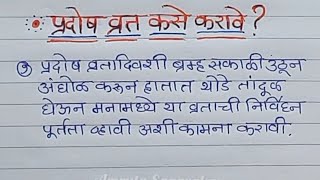 • प्रदोष व्रत कसे करावे ?
① प्रदोष व्रतादिवशी ब्रम्ह सकाळी उठून
अंघोळ करून हातात थोडे तांदूळ
घेऊन मनामध्ये या व्रताची निर्विघ्न
पूर्तता व्हावी अशी कामना करावी.